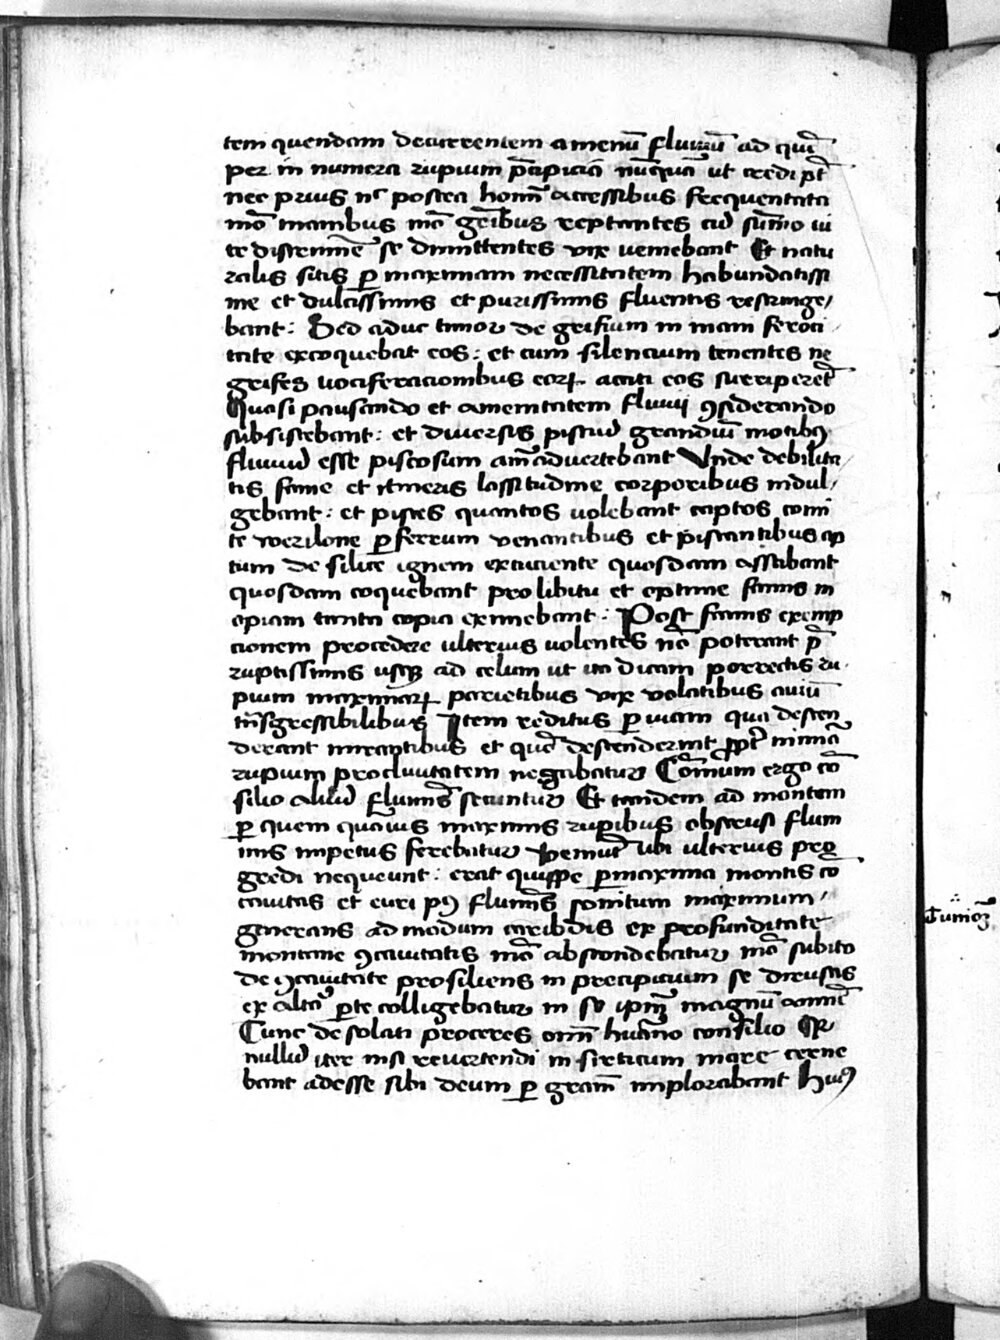 tem quendam decurrentem amenū fluuiū ad quē
per in numera rupium p̄cipicia nūquā ut credi pt̄
nec prius nͨ postea hom̄ accessibus frequentata
mō manibus mō genibus reptantes cū sūmo ui
te discrimīe se dimittentes vix ueniebant Et natu
ralis sitis ꝑ maximam necessitatem habundatissi
me et dulcissimis et purissimis fluentis restringe/
bant : Sed aduc timor de grifium in mani feroci/
tate excoquebat eos : et cum silencium tenentes ne
grifes uociferacionibus eorꝝ acciti eos surriperēt
Quasi pausando et amenitatem fluuij ꝯsiderando
subsistebant : et diuersis pisciū grandiū motibꝰ
fluuiū esse piscosum aīaduertebant Vnde debilita/
tis fame et itineris lassitudine corporibus indul/
gebant : et pisces quantos uolebant captos comi
te wezilone ꝑ ferrum venantibus et piscantibus ap
tum de silice ignem excuciente quosdam assabant
quosdam coquebant pro libitu et optime famis in
opiam tanta copia eximebant : Post famis exemp
cionem procedere ulterius uolentes nō poterant p̄
ruptissimis usqꝫ ad celum ut ita dicam porrectis ru-
pium maximarꝝ parietibus vix volatibus auiū
trāsgressibilibus Item reditus ꝑ uiam qua descen
derant inreptibus et quē descenderint ꝓpt̄ nimiā
rupium procliuitatem negabatur Cōmum ergo cō
silio aliud fluminis secuntur Et tandem ad montem
ꝑ quem quāuis maximis rupibus obstrusi flum
inis impetus ferebatur veniūt ubi ulterius pro
gredi nequeunt : erat quippe ꝑ maxima montis cō
cauitas et euri pꝰ flumīs sonitum maximum/
generans ad modum caribdis ex profunditate
montane ꝯcauitatis mō abscondebatur mō subito
de ꝯcauitate prosiliens in precipicium se
ex altā ꝑte colligebatur in se ipm̄ magnū amnē
Tunc de solati proceres om̄i humāo consilio
nullū iter nisi reuertendi in sirticum mare cerne
bant adesse sibi deum ꝑ gram̄ implorabant huiꝰ